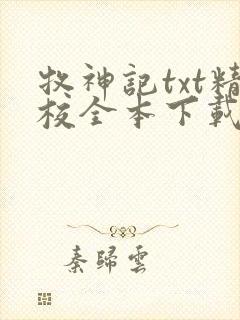 牧神記txt精
校全本下載
秦歸雲